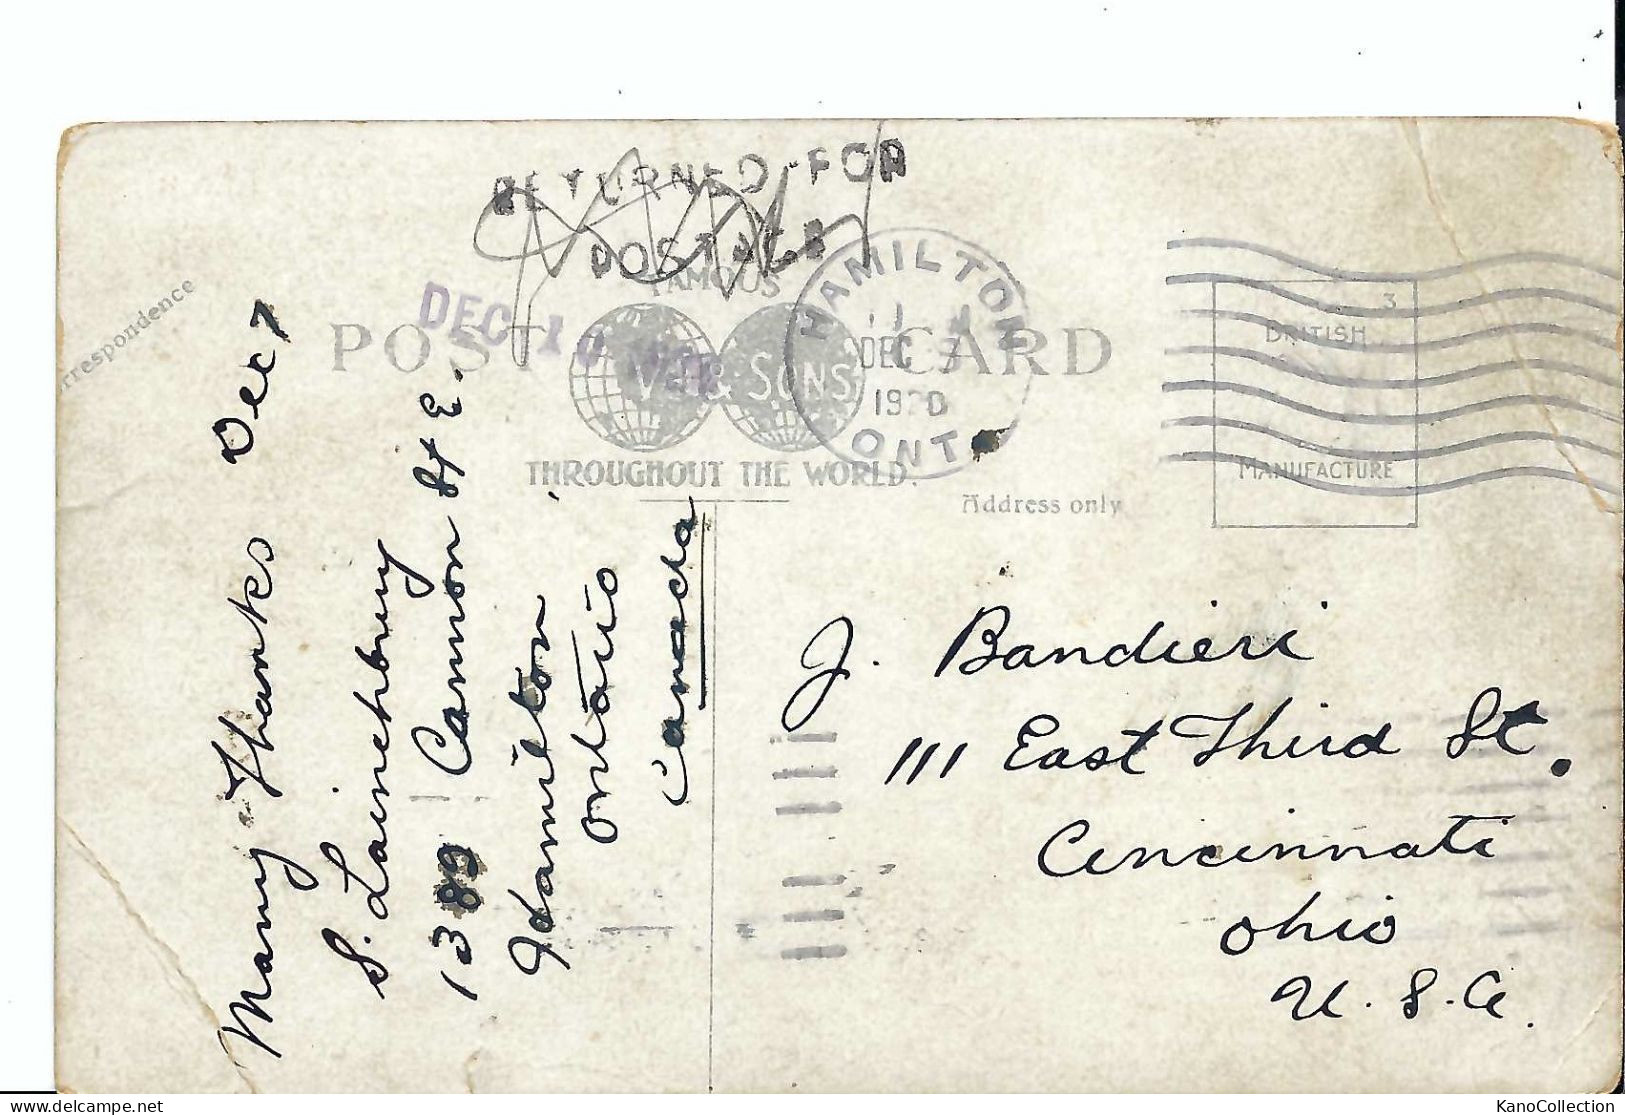 RETURNED FOR
POSTAGE
FAMOUS
POST CARD
& SONS
THROUGHOUT THE WORLD.
DEC 10
HAMILTON
DEC 7
1920
ONT
3
BRITISH
MANUFACTURE
Address only
rrespondence
Dec 7
Many Thanks
S. Lainchbury
1389 Cannon St E.
Hamilton
Ontario
Canada
J. Bandieri
111 East Third St.
Cincinnati
Ohio
U.S.A.
KanoCollection